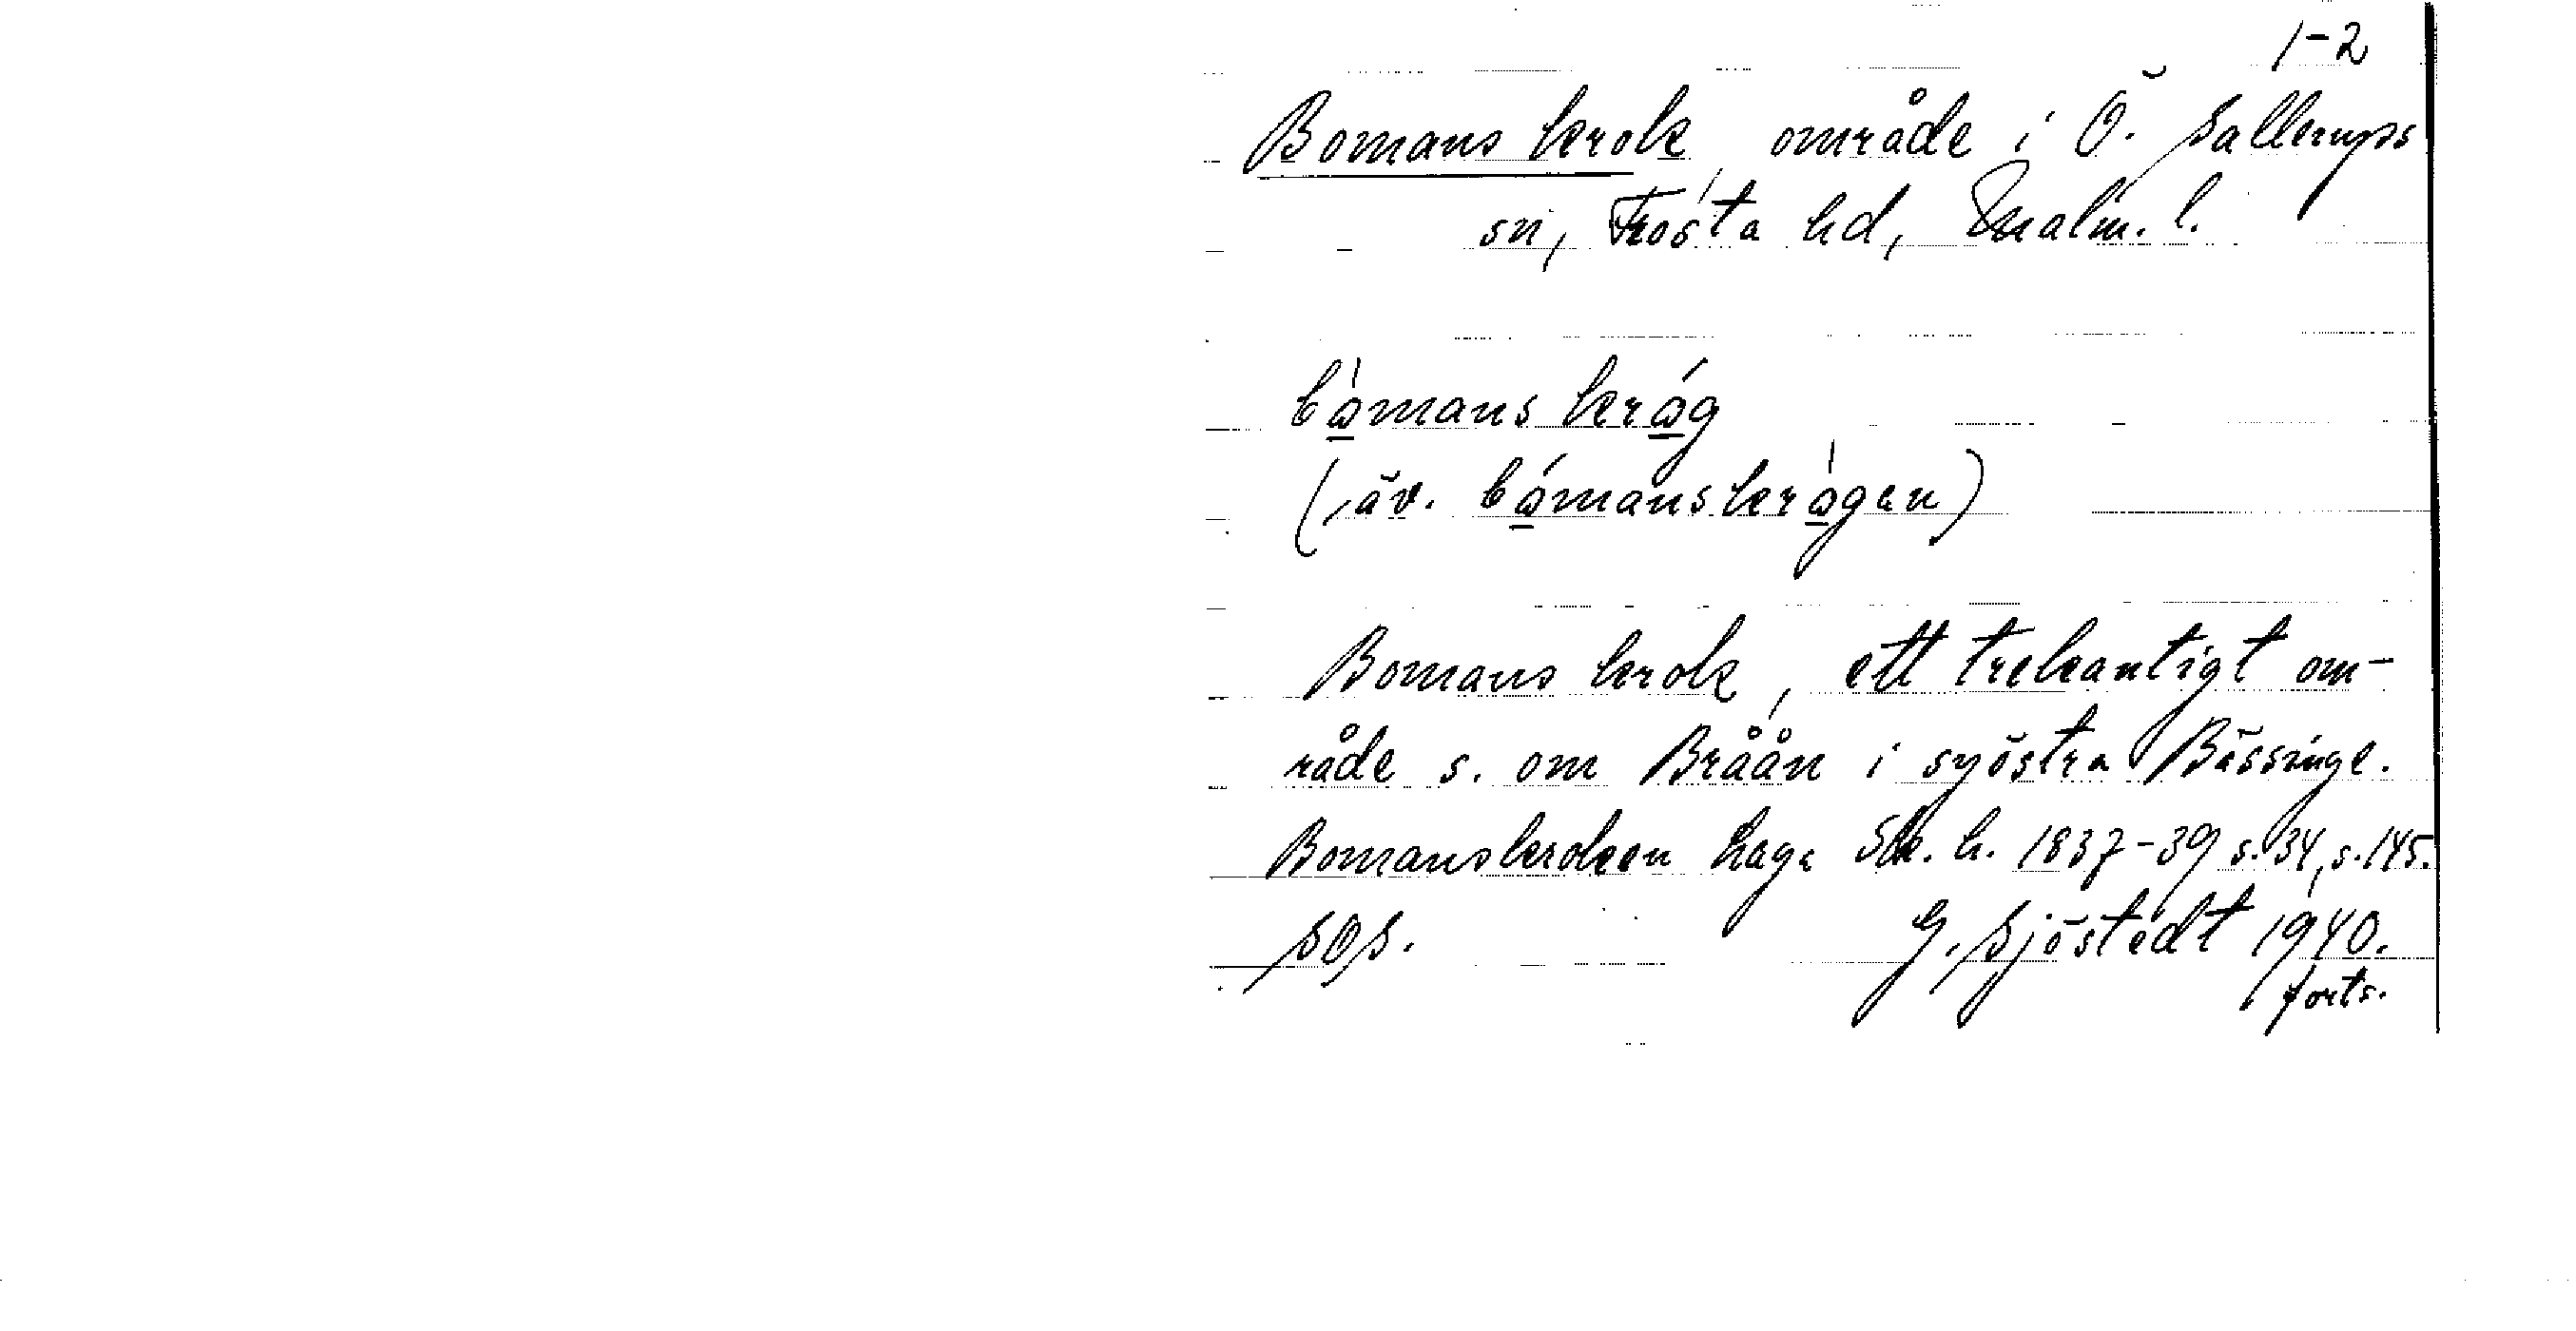 1-2
Bomans krok, område i Ö. Sallerups
sn, Frosta hd, Malm. l.
bòmans króg
(, äv. bómanskrògen)
Bomans krok, ett trekantigt om-
råde s. om Bråån i syöstra Bässinge.
Bomanskroken haga Sk. h. 1837-39 s. 34, s. 145.
SOS. G. Sjöstedt 1940.
forts.